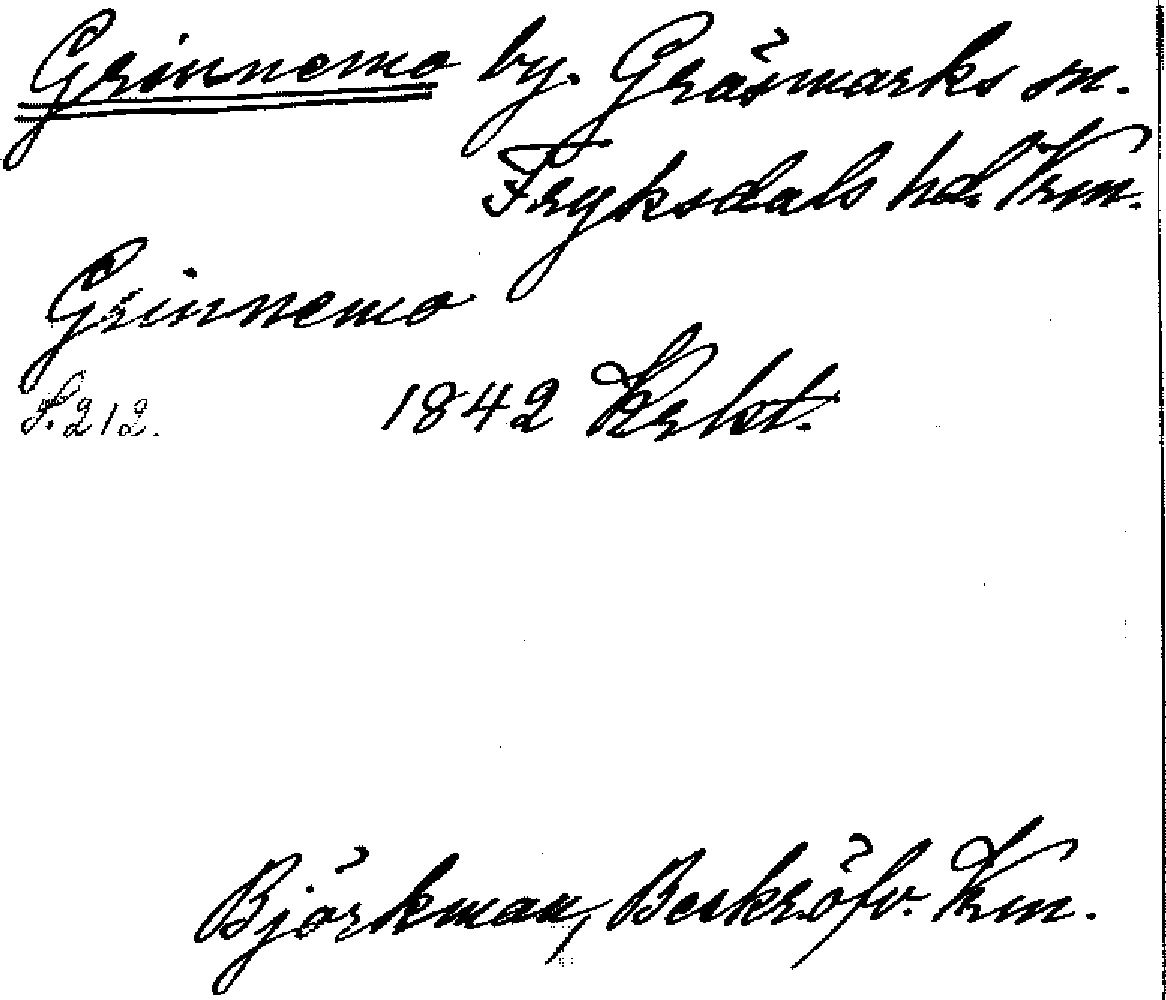 Grinnemo by. Gräsmarks sn.
Fryksdals hd. Vrm.
Grinnemo
S. 212. 1842
Björkman, Beskröfv. Vrm.